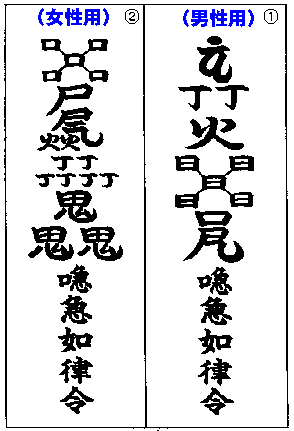 （男性用） ①
丁丁
火
日 日
日
日 日
喼急如律令
（女性用） ②
口 口
口
口 口
丁丁
丁丁丁丁
鬼
鬼鬼
喼急如律令